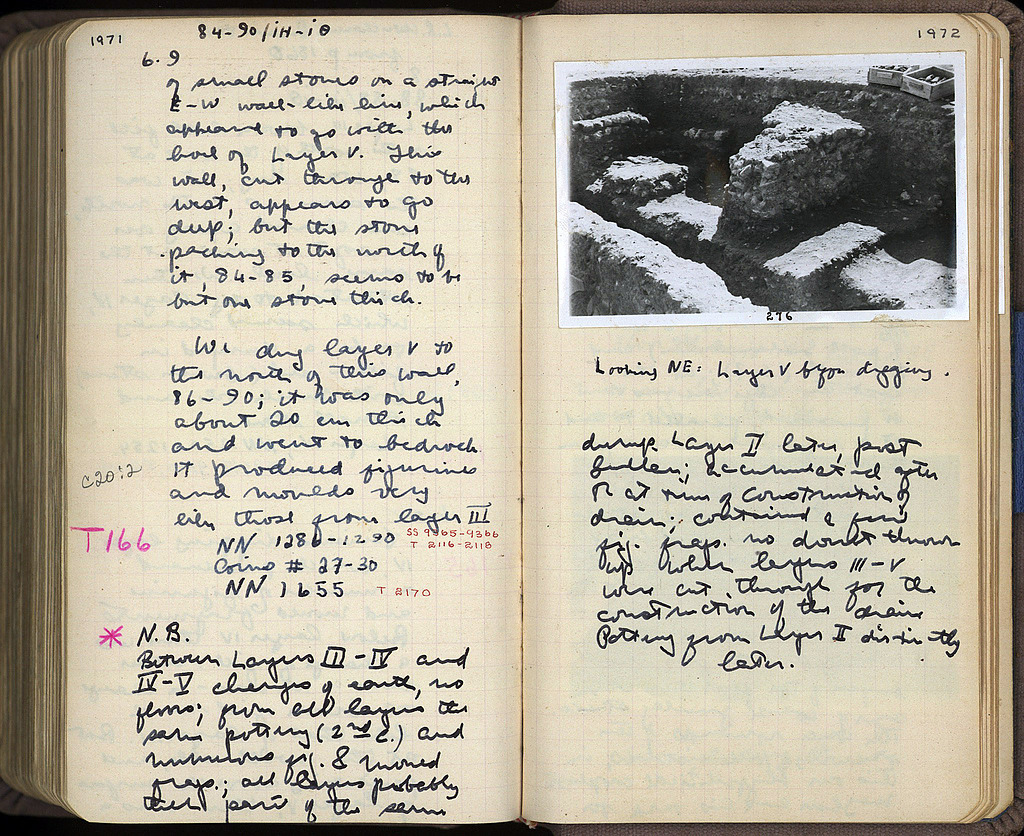 1971
84-90/ΙΗ-ΙΘ
6.9
of small stones on a straight
E-W wall-like line, which
appeared to go with the
bed of Layer V. This
wall, cut through to the
west, appears to go
deep; but the stone
packing to the north of
it, 84-85, seems to be
but one stone thick.
We dug layer V to
the north of this wall,
86-90; it was only
about 20 cm thick
and went to bedrock.
C20:2
It produced figurines
and moulds very
like those from layer III
T166
NN 1286-1290
SS 9365-9366
T 2116-2118
Coins # 27-30
NN 1655
T 2170
* N.B.
Between Layers III-IV and
IV-V changes of earth, no
floors; from all layers the
same pottery (2nd c.) and
numerous fig. & mould
frags.; all layers probably
then part of the same
1972
276
Looking NE: Layer V before digging.
dump. Layer II later, post
Sullan; accumulated after
or at time of construction of
drain; contained a few
fig. frags. no doubt thrown
up when layers III-V
were cut through for the
construction of the drain.
Pottery from Layer II distinctly
later.